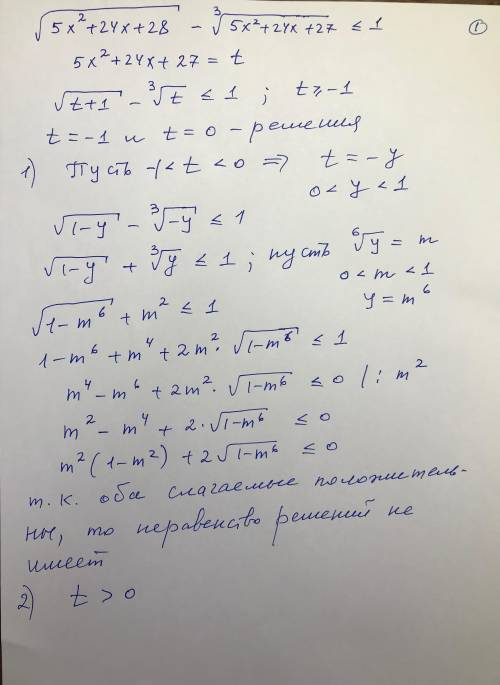 √(5x²+24x+28) - ∛(5x²+24x+27) ≤ 1
①
5x²+24x+27 = t
√(t+1) - ∛t ≤ 1 ; t ≥ -1
t = -1 и t = 0 - решения
1) Пусть -1 < t < 0 ⇒ t = -y
0 < y < 1
√(1-y) - ∛(-y) ≤ 1
√(1-y) + ∛y ≤ 1 ; пусть ⁶√y = m
0 < m < 1
y = m⁶
√(1-m⁶) + m² ≤ 1
1-m⁶ + m⁴ + 2m²·√(1-m⁶) ≤ 1
m⁴ - m⁶ + 2m²·√(1-m⁶) ≤ 0 /: m²
m² - m⁴ + 2·√(1-m⁶) ≤ 0
m²(1-m²) + 2√(1-m⁶) ≤ 0
т.к. оба слагаемые положитель-
ны, то неравенство решений не
имеет
2) t > 0